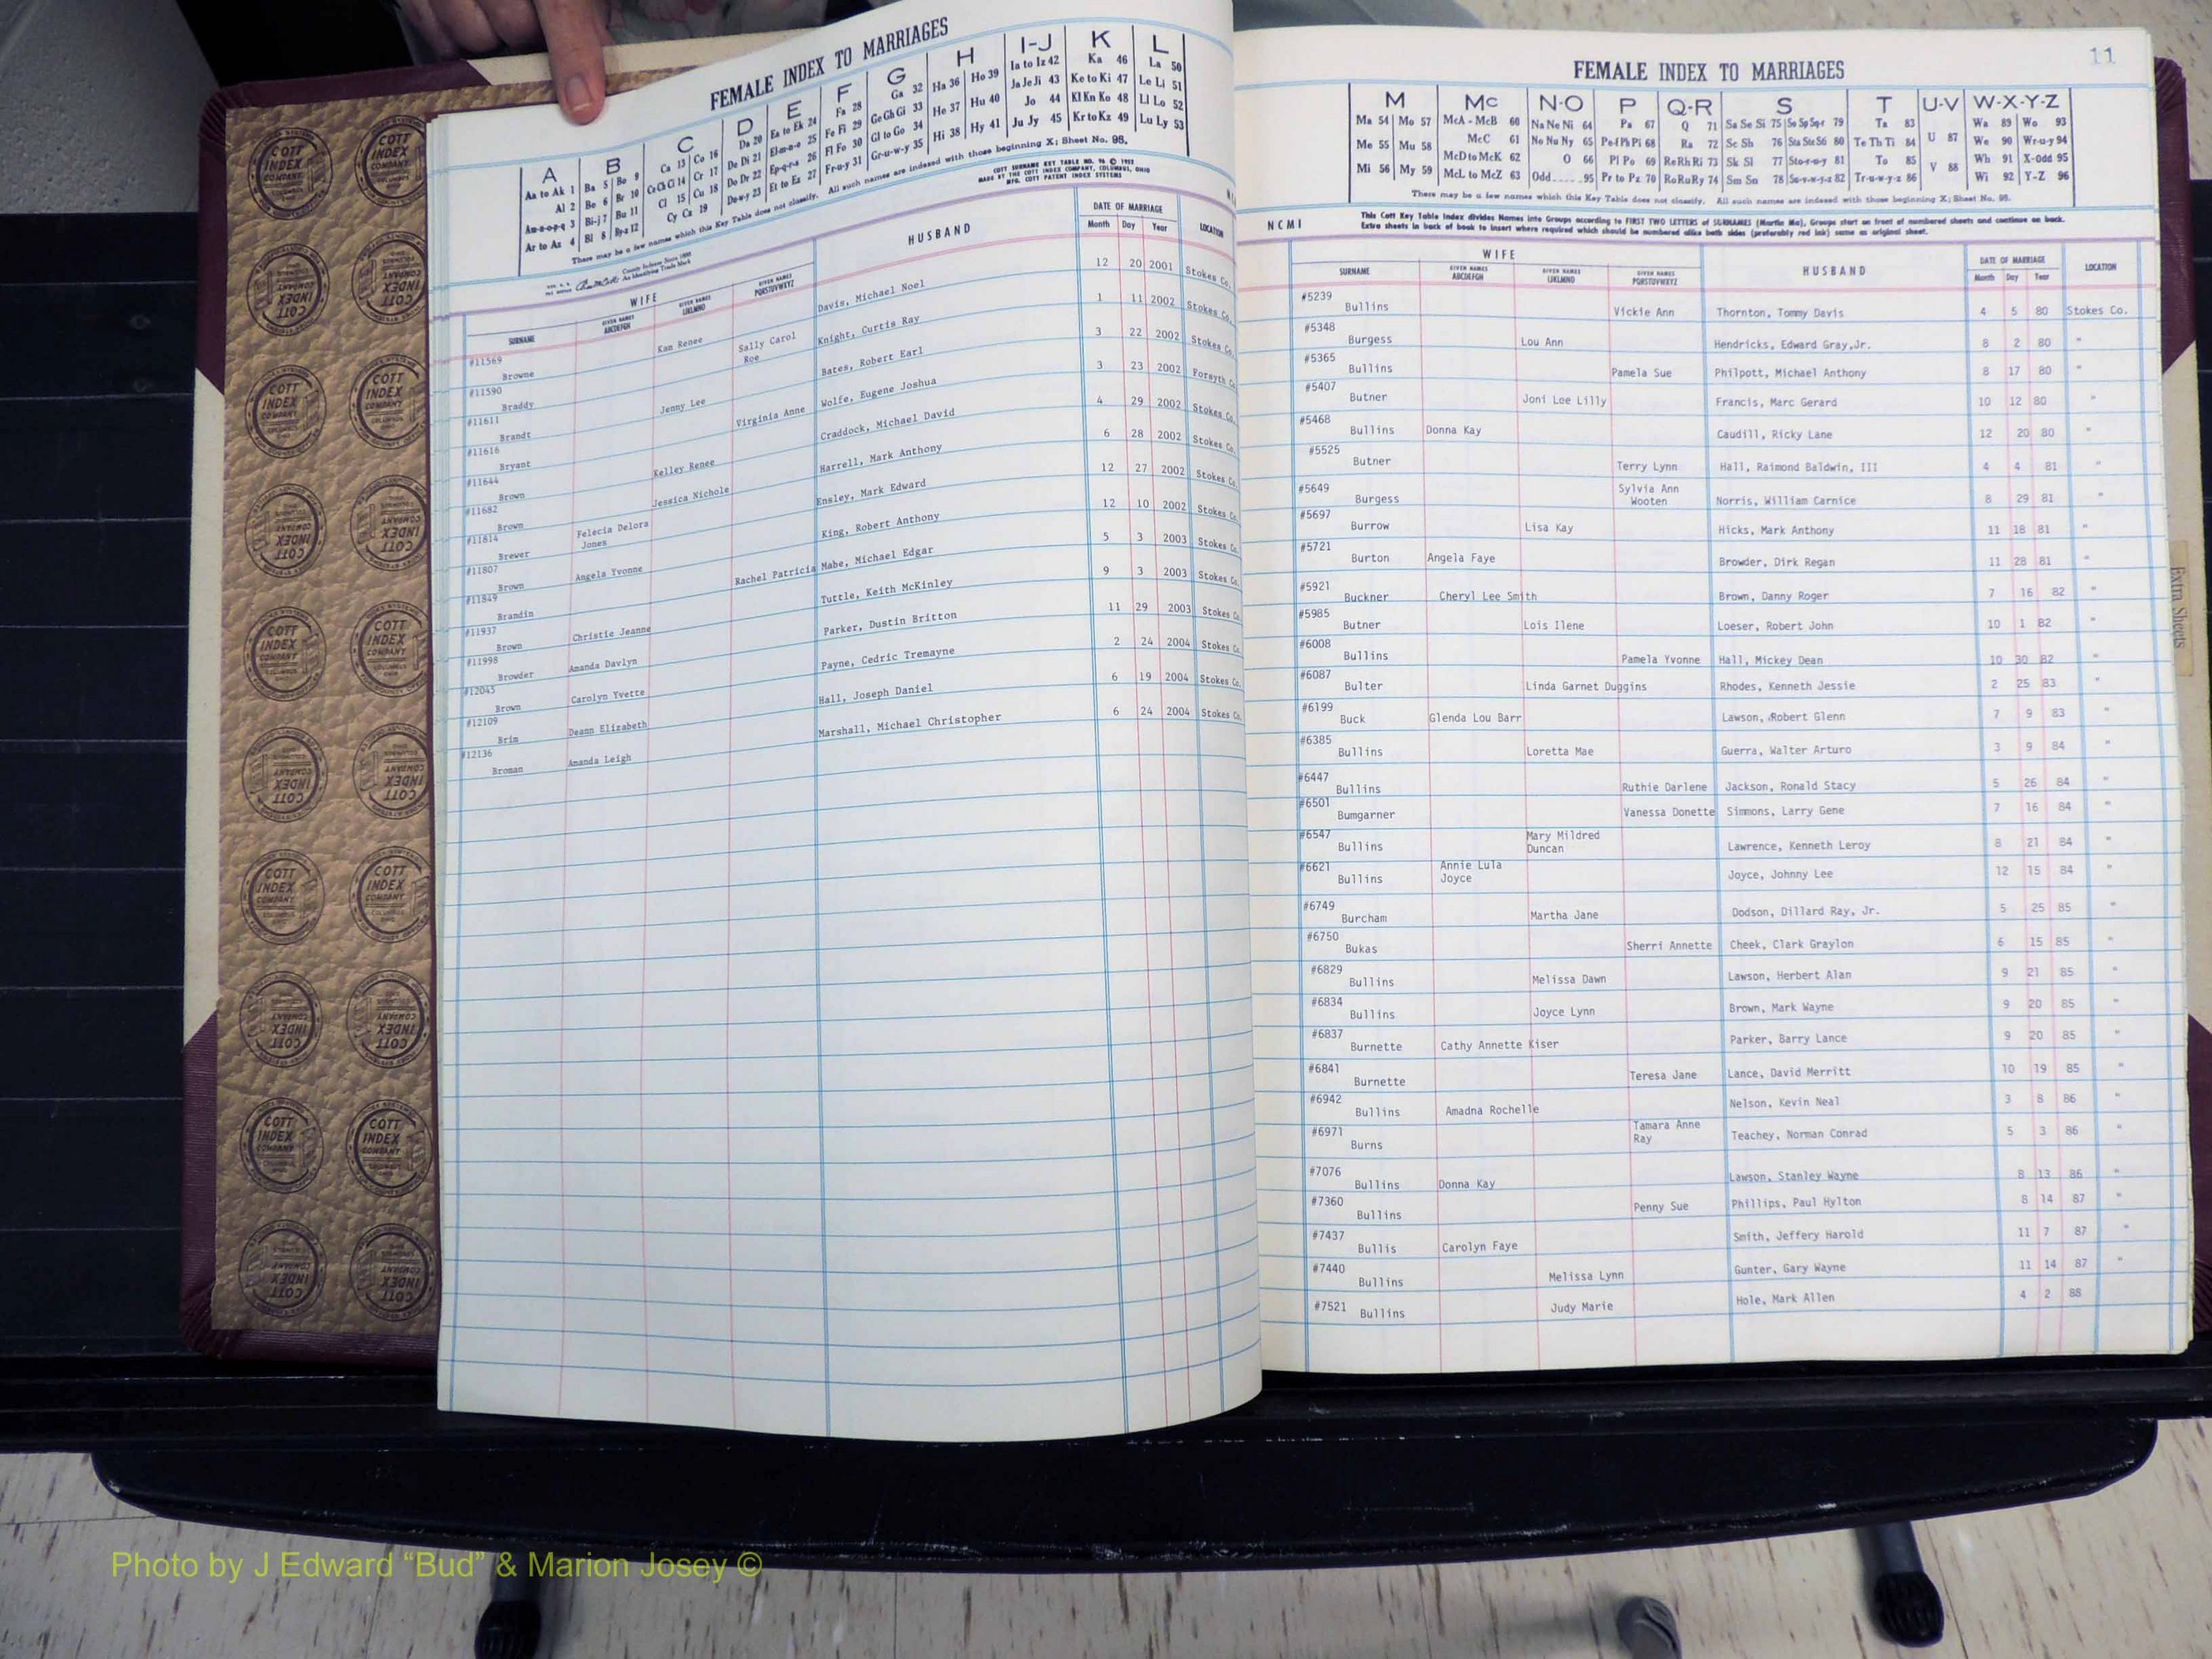 FEMALE INDEX TO MARRIAGES
A B C D E F G H I-J K L
Aa to Ak 1 Ba 5 Bo 9 Ca 13 Co 16 Da 20 Ea to Ek 24 Fa 28 Ga 32 Ha 36 Ho 39 Ia to Iz 42 Ka 46 La 50
Al 2 Be 6 Br 10 Ce Ch Ci 14 Cr 17 De Di 21 El-m-n-o 25 Fe Fi 29 Ge Gh Gi 33 He 37 Hu 40 Ja Je Ji 43 Ke to Ki 47 Le Li 51
Am-n-o-p-q 3 Bi-j 7 Bu 11 Cl 15 Cu 18 Do Dr 22 Ep-q-r-s 26 Fl Fo 30 Gl to Go 34 Hi 38 Hy 41 Jo 44 Kl Kn Ko 48 Ll Lo 52
Ar to Az 4 Bl 8 By-z 12 Cy Cz 19 Du-w-y 23 Et to Ez 27 Fr-u-y 31 Gr-u-w-y 35 Ju Jy 45 Kr to Kz 49 Lu Ly 53
There may be a few names which this Key Table does not classify. All such names are indexed with those beginning X; Sheet No. 98.
COTT SURNAME KEY TABLE NO. 96 © 1952
MADE BY THE COTT INDEX COMPANY, COLUMBUS, OHIO
MFG. COTT PATENT INDEX SYSTEMS
County Indexes Since 1888
An Identifying Trade Mark
WIFE HUSBAND DATE OF MARRIAGE LOCATION
SURNAME GIVEN NAMES ABCDEFGH GIVEN NAMES IJKLMNO GIVEN NAMES PQRSTUVWXYZ Month Day Year
#11569 Browne Kan Renee Davis, Michael Noel 12 20 2001 Stokes Co.
#11590 Braddy Sally Carol Roe Knight, Curtis Ray 1 11 2002 Stokes Co.
#11611 Brandt Jenny Lee Bates, Robert Earl 3 22 2002 Stokes Co.
#11616 Bryant Virginia Anne Wolfe, Eugene Joshua 3 23 2002 Forsyth Co.
#11644 Brown Kelley Renee Craddock, Michael David 4 29 2002 Stokes Co.
#11682 Brown Jessica Nichole Harrell, Mark Anthony 6 28 2002 Stokes Co.
#11814 Brewer Felecia Delora Jones Ensley, Mark Edward 12 27 2002 Stokes Co.
#11807 Brown Angela Yvonne King, Robert Anthony 12 10 2002 Stokes Co.
#11849 Brandin Rachel Patricia Mabe, Michael Edgar 5 3 2003 Stokes Co.
#11937 Brown Christie Jeanne Tuttle, Keith McKinley 9 3 2003 Stokes Co.
#11998 Browder Amanda Davlyn Parker, Dustin Britton 11 29 2003 Stokes Co.
#12045 Brown Carolyn Yvette Payne, Cedric Tremayne 2 24 2004 Stokes Co.
#12109 Brim Deann Elizabeth Hall, Joseph Daniel 6 19 2004 Stokes Co.
#12136 Broman Amanda Leigh Marshall, Michael Christopher 6 24 2004 Stokes Co.
11
FEMALE INDEX TO MARRIAGES
M Mc N-O P Q-R S T U-V W-X-Y-Z
Ma 54 Mo 57 McA - McB 60 Na Ne Ni 64 Pa 67 Q 71 Sa Se Si 75 So Sp Sq-r 79 Ta 83 U 87 Wa 89 Wo 93
Me 55 Mu 58 McC 61 No Nu Ny 65 Pe-f Ph Pi 68 Ra 72 Sc Sh 76 Sta Ste S6 80 Te Th Ti 84 V 88 We 90 Wr-u-y 94
Mi 56 My 59 McD to McK 62 O 66 Pl Po 69 Re Rh Ri 73 Sk Sl 77 Sto-r-u-y 81 To 85 Wh 91 X-Odd 95
McL to McZ 63 Odd.....95 Pr to Pz 70 Ro Ru Ry 74 Sm Sn 78 Su-v-w-y-z 82 Tr-u-w-y-z 86 Wi 92 Y-Z 96
There may be a few names which this Key Table does not classify. All such names are indexed with those beginning X; Sheet No. 98.
NCMI
This Cott Key Table Index divides Names into Groups according to FIRST TWO LETTERS of SURNAMES (Martin Ma), Groups start on front of numbered sheets and continue on back.
Extra sheets in back of book to insert where required which should be numbered alike both sides (preferably red ink) same as original sheet.
WIFE HUSBAND DATE OF MARRIAGE LOCATION
SURNAME GIVEN NAMES ABCDEFGH GIVEN NAMES IJKLMNO GIVEN NAMES PQRSTUVWXYZ Month Day Year
#5239 Bullins Vickie Ann Thornton, Tommy Davis 4 5 80 Stokes Co.
#5348 Burgess Lou Ann Hendricks, Edward Gray,Jr. 8 2 80 "
#5365 Bullins Pamela Sue Philpott, Michael Anthony 8 17 80 "
#5407 Butner Joni Lee Lilly Francis, Marc Gerard 10 12 80 "
#5468 Bullins Donna Kay Caudill, Ricky Lane 12 20 80 "
#5525 Butner Terry Lynn Hall, Raimond Baldwin, III 4 4 81 "
#5649 Burgess Sylvia Ann Wooten Norris, William Carnice 8 29 81 "
#5697 Burrow Lisa Kay Hicks, Mark Anthony 11 18 81 "
#5721 Burton Angela Faye Browder, Dirk Regan 11 28 81 "
#5921 Buckner Cheryl Lee Smith Brown, Danny Roger 7 16 82 "
#5985 Butner Lois Ilene Loeser, Robert John 10 1 82 "
#6008 Bullins Pamela Yvonne Hall, Mickey Dean 10 30 82 "
#6087 Bulter Linda Garnet Duggins Rhodes, Kenneth Jessie 2 25 83 "
#6199 Buck Glenda Lou Barr Lawson, Robert Glenn 7 9 83 "
#6385 Bullins Loretta Mae Guerra, Walter Arturo 3 9 84 "
#6447 Bullins Ruthie Darlene Jackson, Ronald Stacy 5 26 84 "
#6501 Bumgarner Vanessa Donette Simmons, Larry Gene 7 16 84 "
#6547 Bullins Mary Mildred Duncan Lawrence, Kenneth Leroy 8 21 84 "
#6621 Bullins Annie Lula Joyce Joyce, Johnny Lee 12 15 84 "
#6749 Burcham Martha Jane Dodson, Dillard Ray, Jr. 5 25 85 "
#6750 Bukas Sherri Annette Cheek, Clark Graylon 6 15 85 "
#6829 Bullins Melissa Dawn Lawson, Herbert Alan 9 21 85 "
#6834 Bullins Joyce Lynn Brown, Mark Wayne 9 20 85 "
#6837 Burnette Cathy Annette Kiser Parker, Barry Lance 9 20 85 "
#6841 Burnette Teresa Jane Lance, David Merritt 10 19 85 "
#6942 Bullins Amadna Rochelle Nelson, Kevin Neal 3 8 86 "
#6971 Burns Tamara Anne Ray Teachey, Norman Conrad 5 3 86 "
#7076 Bullins Donna Kay Lawson, Stanley Wayne 8 13 86 "
#7360 Bullins Penny Sue Phillips, Paul Hylton 8 14 87 "
#7437 Bullis Carolyn Faye Smith, Jeffery Harold 11 7 87 "
#7440 Bullins Melissa Lynn Gunter, Gary Wayne 11 14 87 "
#7521 Bullins Judy Marie Hole, Mark Allen 4 2 88
Extra Sheets
COTT INDEX COMPANY COLUMBUS OHIO
Photo by J Edward “Bud” & Marion Josey ©